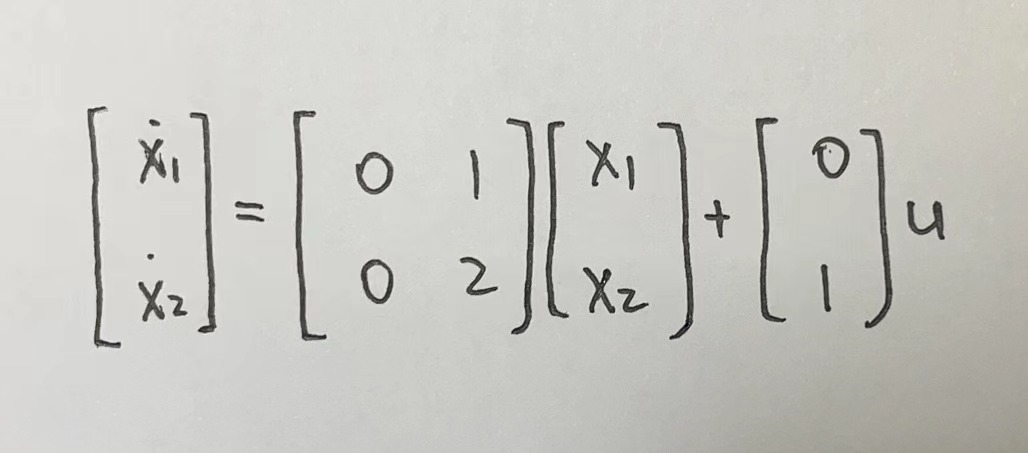 [ẋ1 ẋ2] = [0 1 0 2] [x1 x2] + [0 1] u